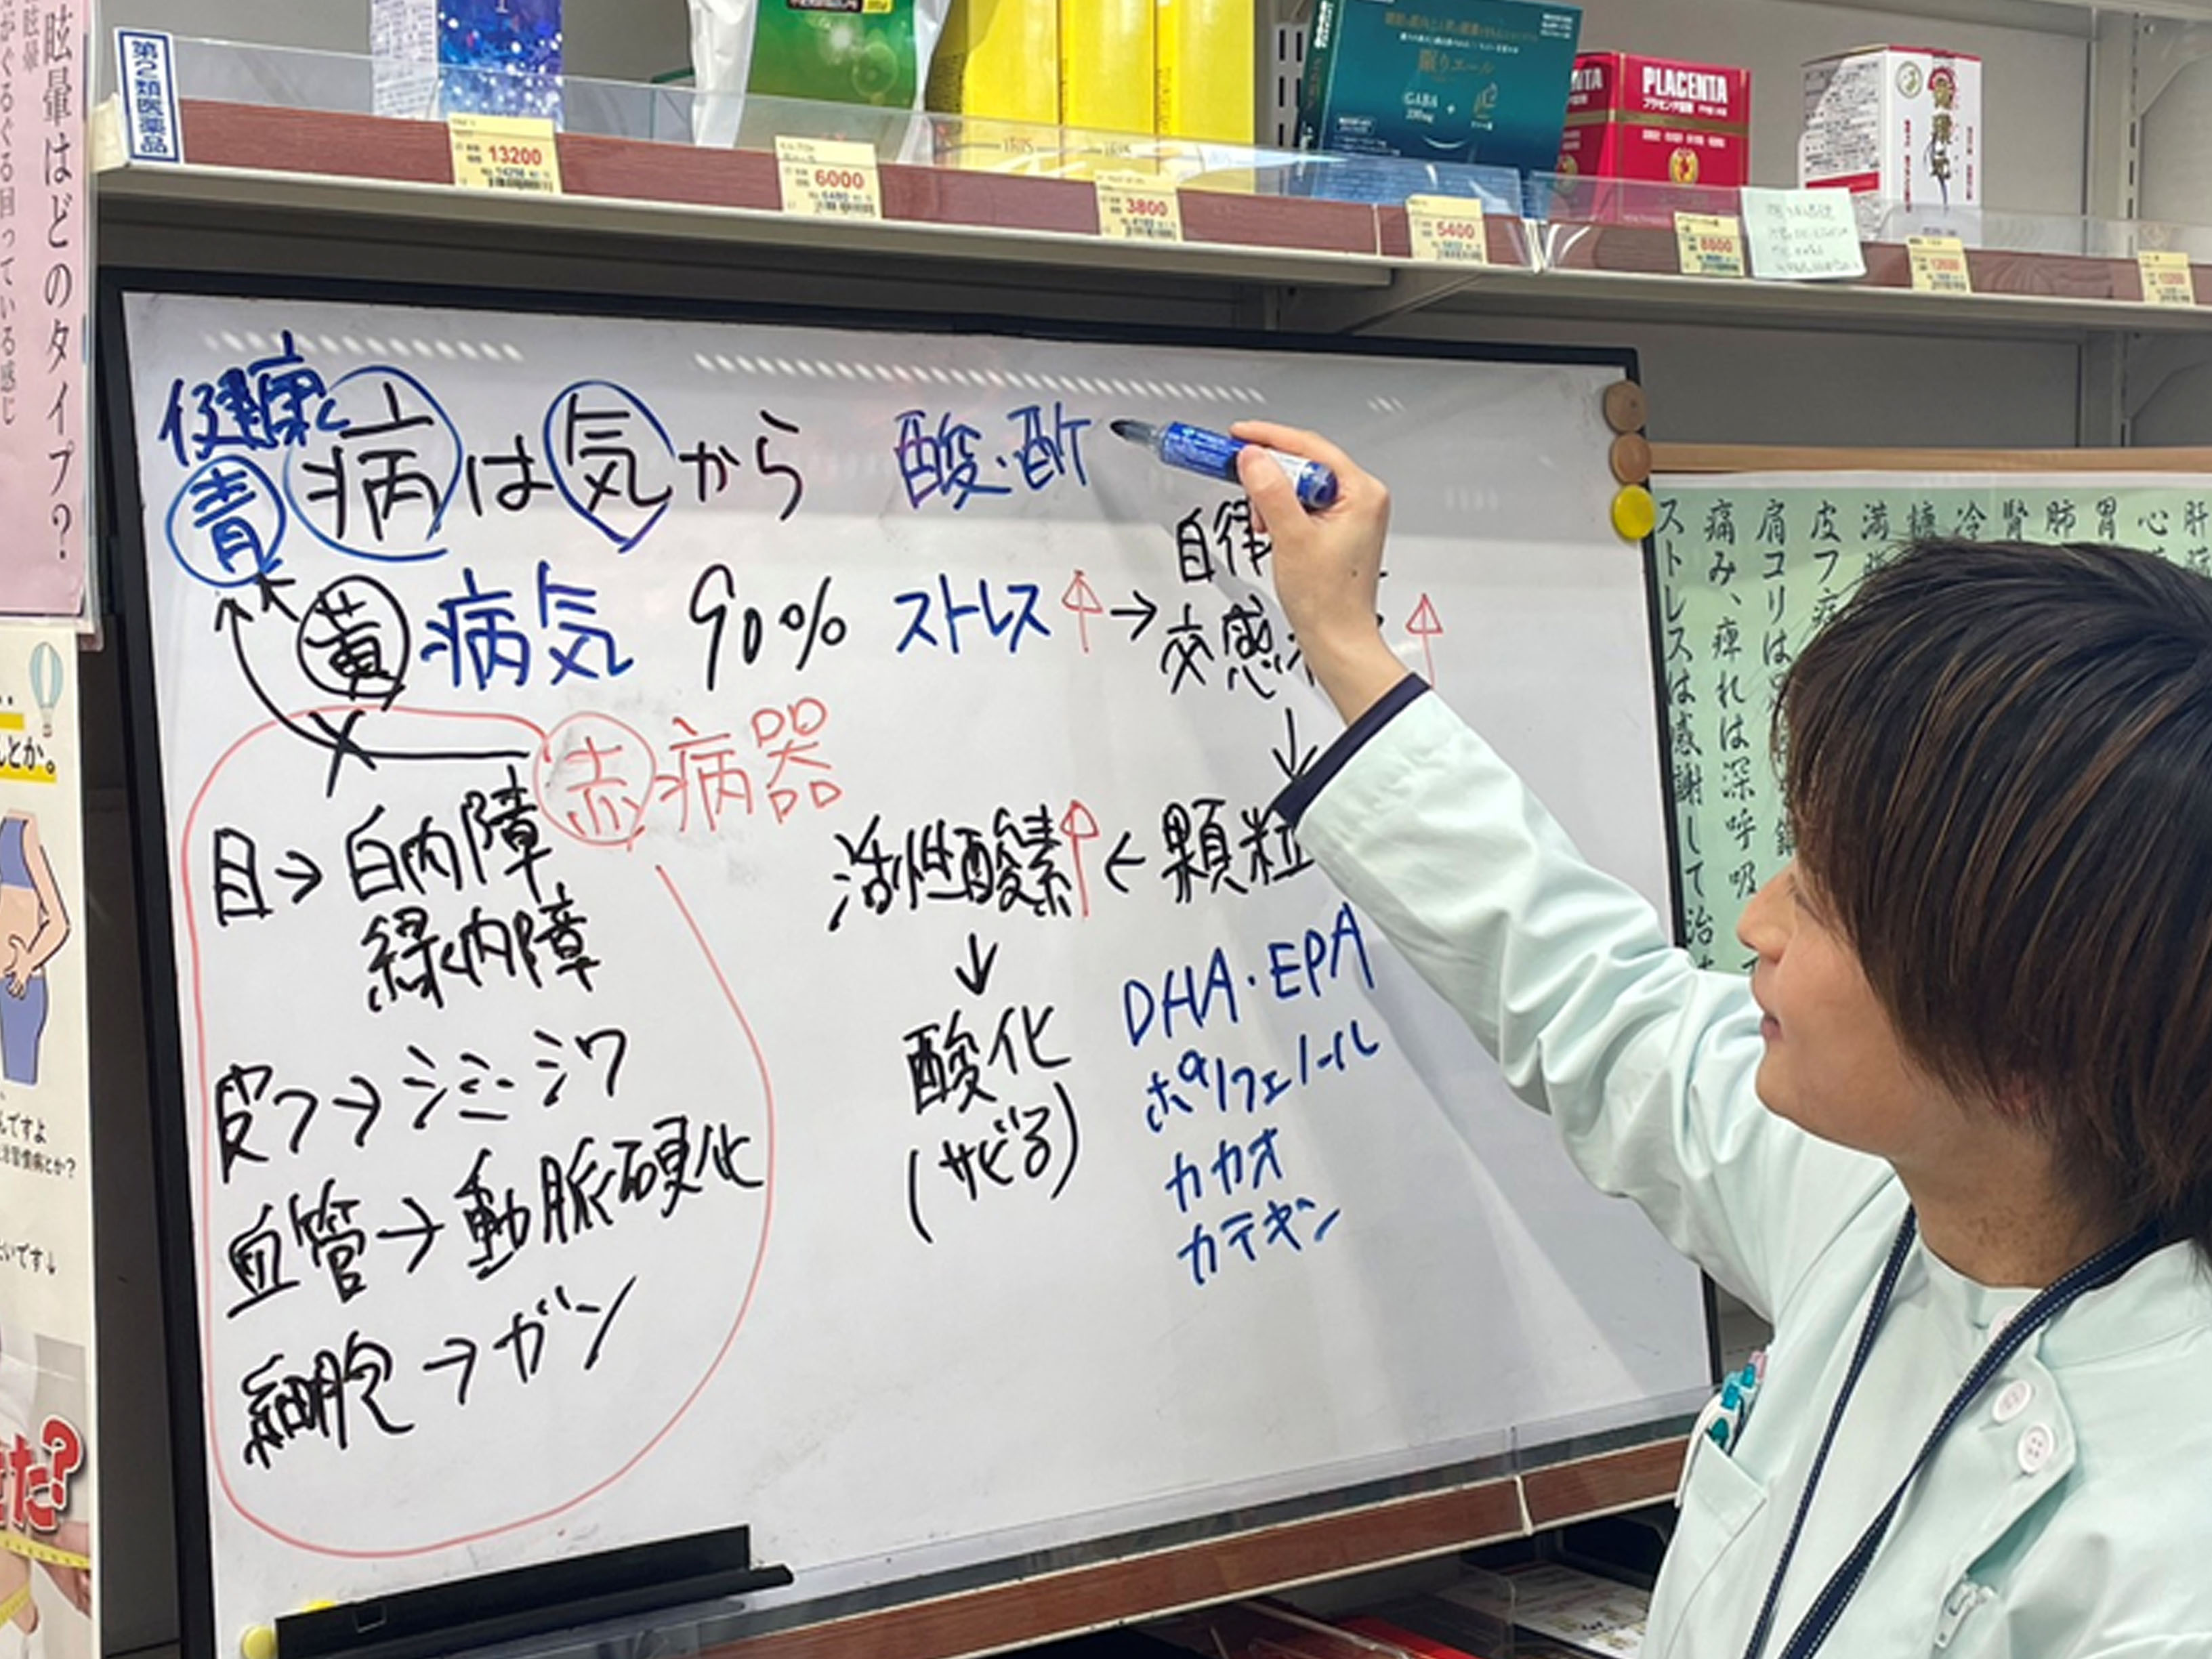 眩暈はどのタイプ?
がぐるぐる回っている感じ
第2類医薬品
13200
6000
3800
5400
8800
GABA
PLACENTA
プラセンタ
健康
青
病は気から
酸・酢
黄
病気 90% ストレス↑→
自律
交感
↓
赤 病器
目→白内障
緑内障
活性酸素↑←顆粒
↓
酸化
(サビる)
DHA・EPA
ポリフェノール
カカオ
カテキン
皮フ→シミ・シワ
血管→動脈硬化
細胞→ガン
肝
心
胃
肺
腎
冷
皮フ
肩コリは
痛み、痺れは深呼吸
ストレスは感謝して治
とか。
んですよ
習慣病とか?
いです↓
た?